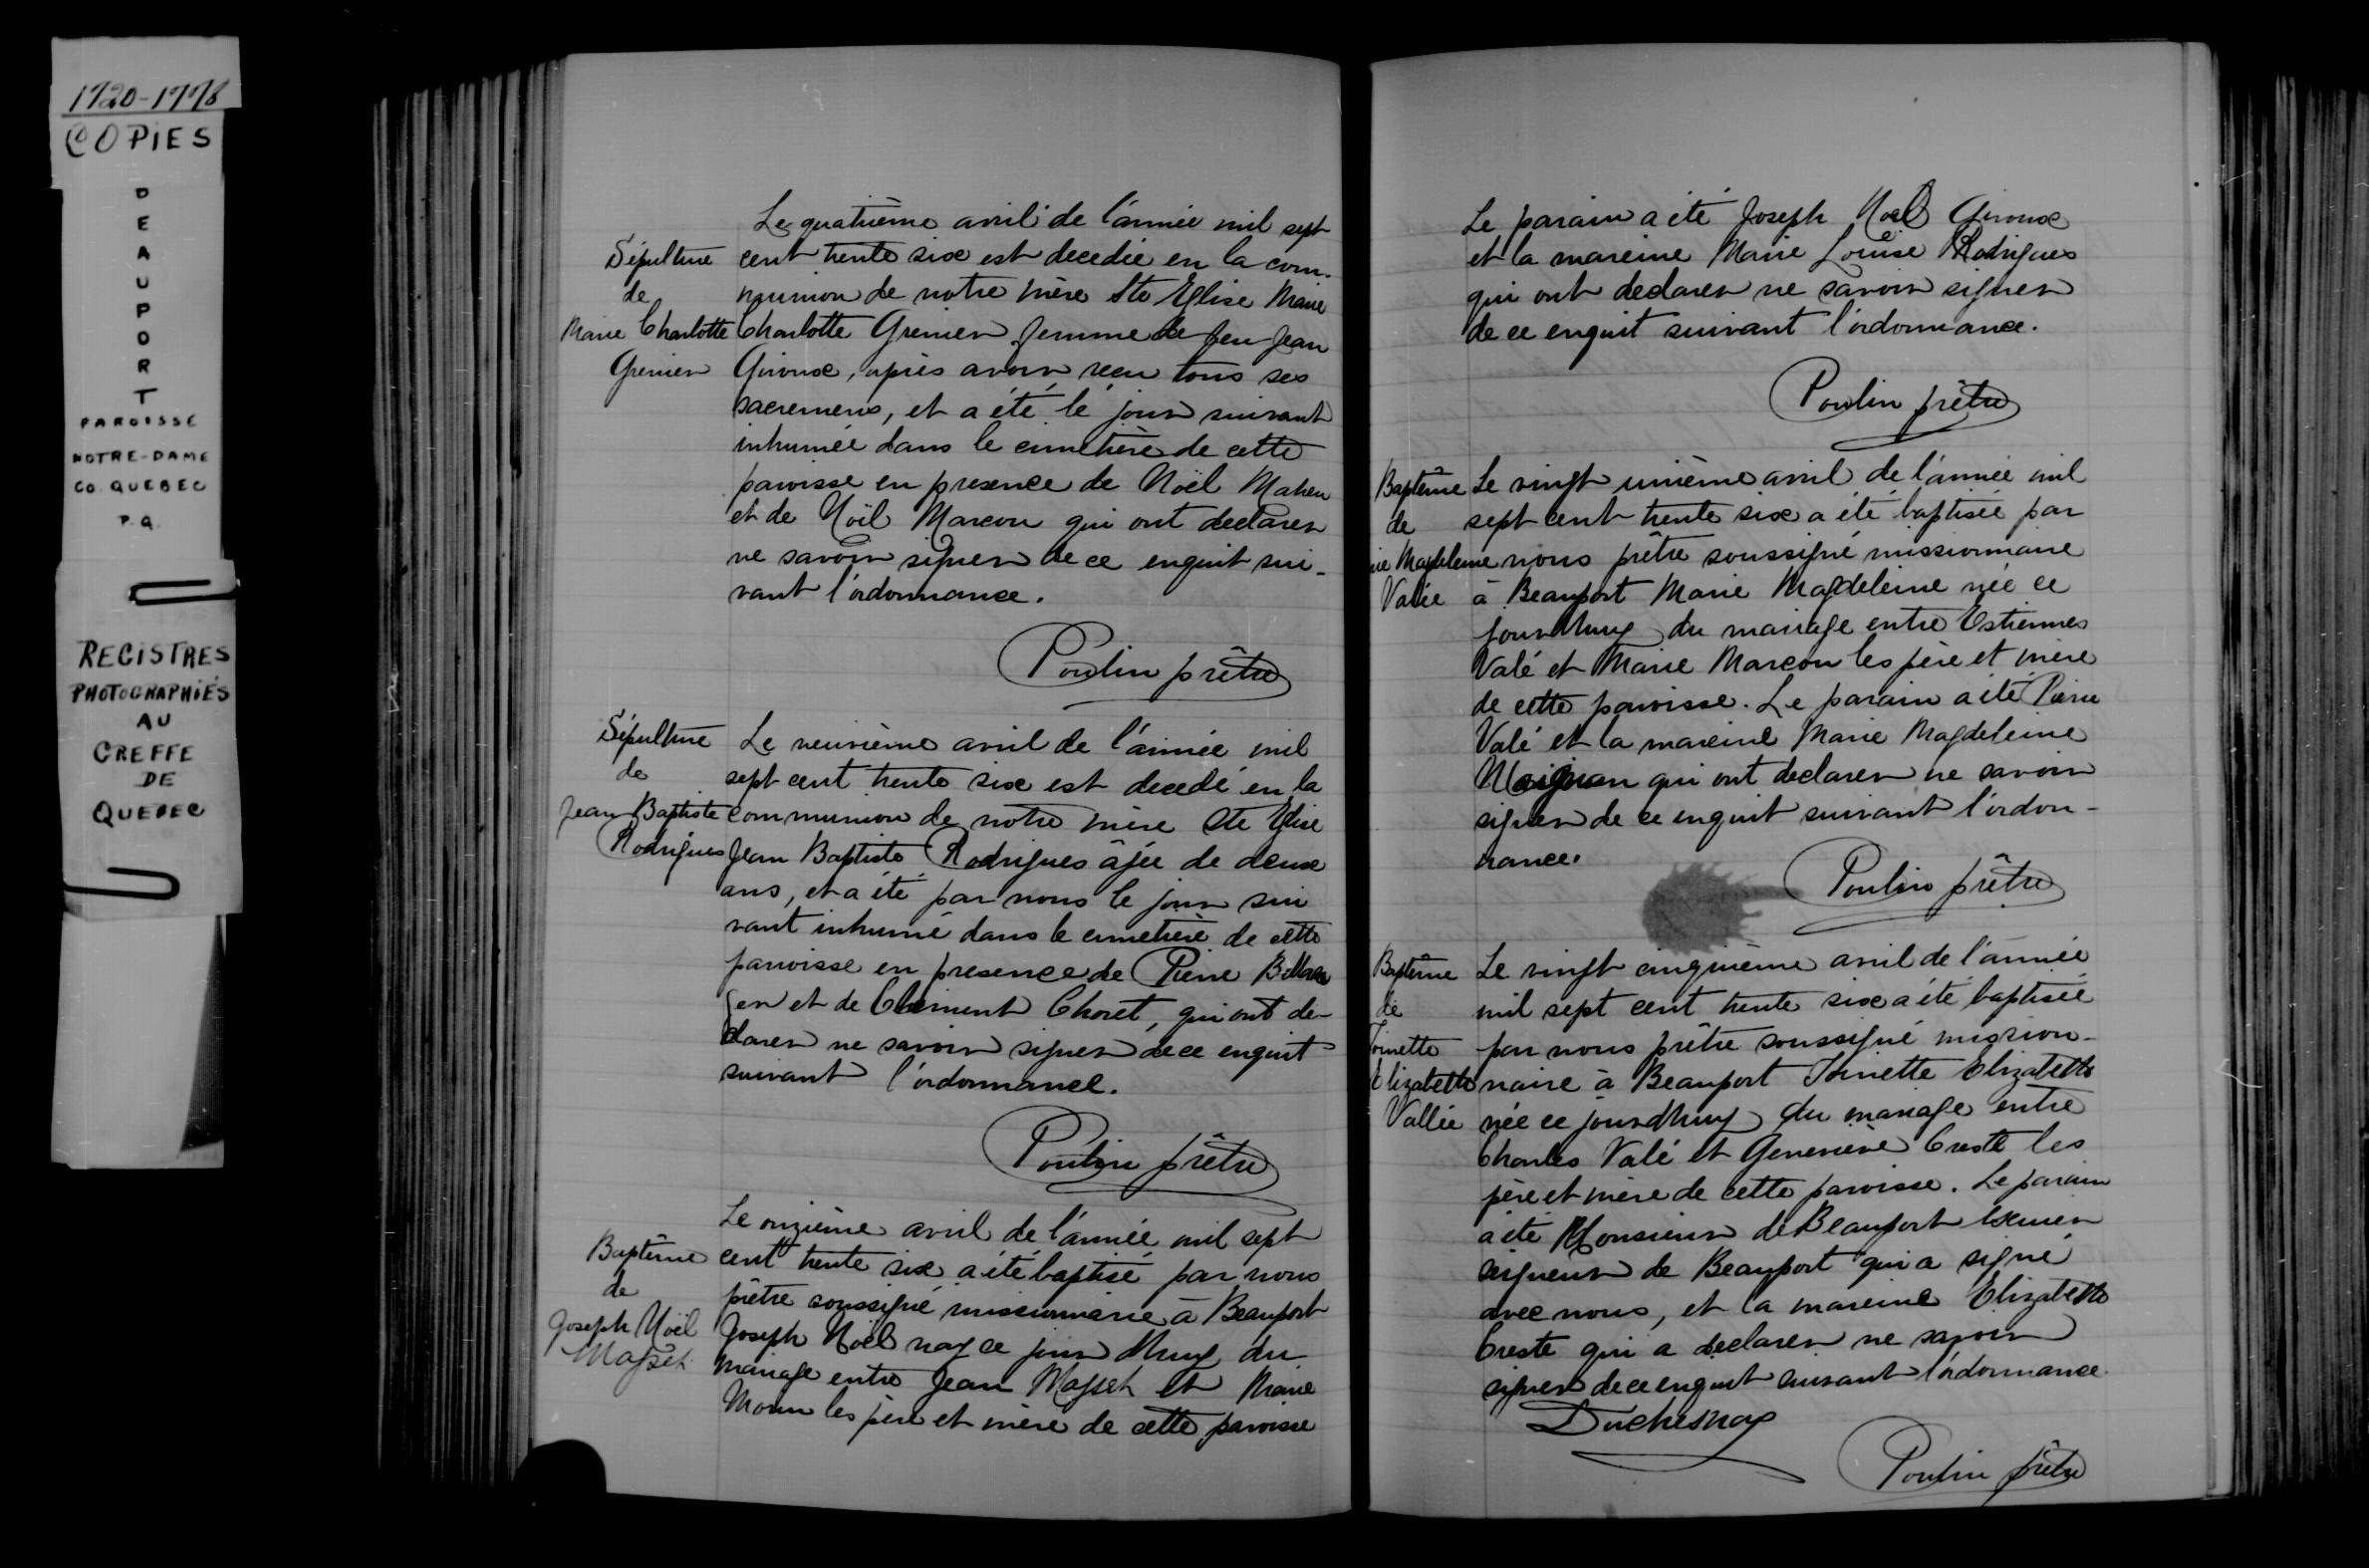 1720-1778
COPIES
BEAUPORT
PAROISSE
NOTRE-DAME
CO. QUEBEC
P.Q.
REGISTRES
PHOTOGRAPHIÉS
AU
GREFFE
DE
QUEBEC
Sépulture
de
Marie Charlotte
Grenier
Le quatrième avril de l'année mil sept
cent trente six est decedée en la com-
munion de notre mère Ste Eglise Marie
Charlotte Grenier femme de feu Jean
Giroux, après avoir reçu tous ses
sacremens, et a été le jour suivant
inhumée dans le cimetière de cette
paroisse en presence de Noël Maheu
et de Noël Marcou qui ont declarer
ne savoir signer de ce enquit sui-
vant l'ordonnance.
Poulin prêtre
Sépulture
de
Jean Baptiste
Rodrigues
Le neuvième avril de l'année mil
sept cent trente six est decedé en la
communion de notre mère Ste Eglise
Jean Baptiste Rodrigues âjée de deux
ans, et a été par nous le jour sui
vant inhumé dans le cimetière de cette
paroisse en presence de Pierre
ger et de Clement Choret, qui ont de-
clarer ne savoir signer de ce enquit
suivant l'ordonnance.
Poulin prêtre
Baptême
de
Joseph Noël
Masset
Le onzième avril de l'année mil sept
cent trente six a été baptisé par nous
prêtre soussigné missionnaire à Beauport
Joseph Noël nay ce jour dhuy du
mariage entre Jean Masset et Marie
Morin les père et mère de cette paroisse
Le parain a été Joseph Noël Giroux
et la mareine Marie Louise Rodrigues
qui ont declarer ne savoir signer
de ce enquit suivant l'ordonnance.
Poulin prêtre
Baptême
de
ie Magdeleine
Valée
Le vingt unième avril de l'année mil
sept cent trente six a été baptisée par
nous prêtre soussigné missionnaire
à Beauport Marie Magdeleine née ce
jourdhuy du mariage entre Estienne
Valé et Marie Marcou les père et mère
de cette paroisse. Le parain a été Pierre
Valé et la mareine Marie Magdeleine
Maignan qui ont declarer ne savoir
signer de ce enquit suivant l'ordon-
nance.
Poulin prêtre
Baptême
de
Toinette
Elizabeth
Vallée
Le vingt cinquième avril de l'année
mil sept cent trente six a été baptisée
par nous prêtre soussigné mission-
naire à Beauport Toinette Elizabeth
née ce jourdhuy du mariage entre
Charles Valé et Geneviève Creste les
père et mère de cette paroisse. Le parain
a été Monsieur de Beauport
seigneur de Beauport qui a signé
avec nous, et la mareine Elizabeth
Creste qui a declarer ne savoir
signer de ce enquit suivant l'ordonnance
Duchesnay
Poulin prêtre